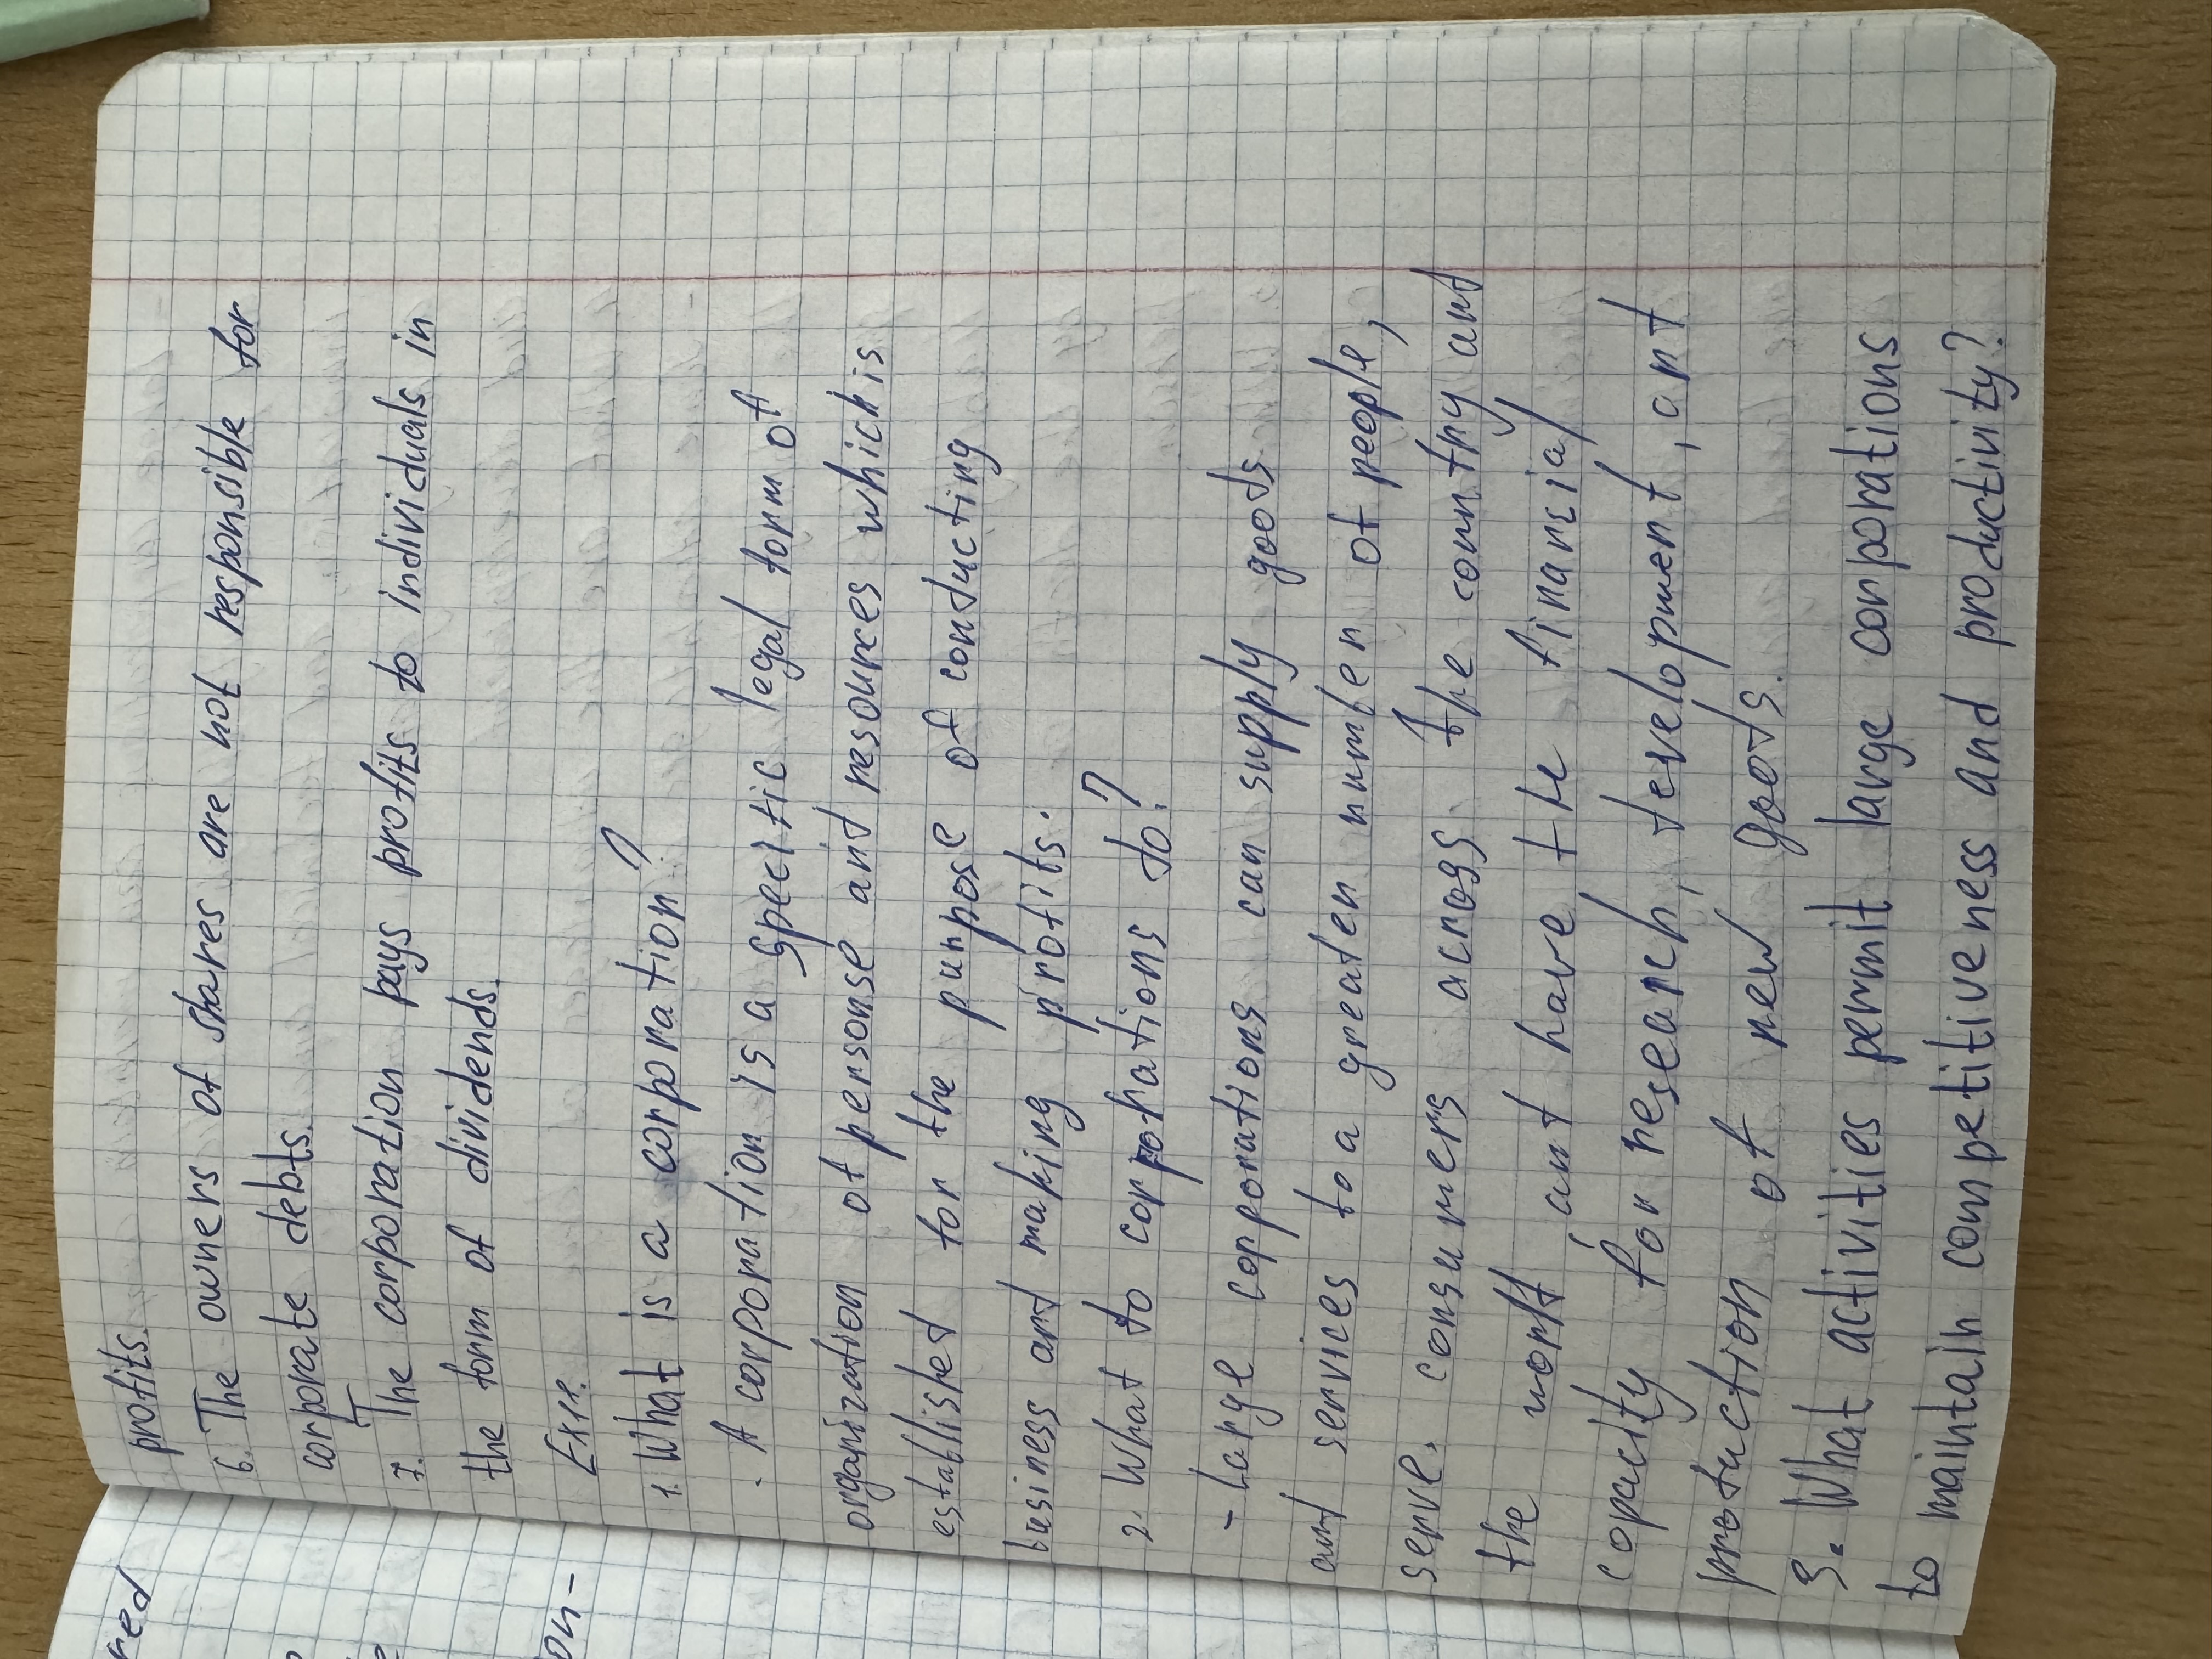 profits.
6. The owners of shares are not responsible for
corporate debts.
7. The corporation pays profits to individuals in
the form of dividends.
Ex11.
1. What is a corporation?
. A corporation is a specific legal form of
organization of personse and resources which is
established for the purpose of conducting
business and making profits.
2. What do corporations do?
- Large copporations can supply goods
and services to a greater number of people,
serve. consumers across the country and
the world and have the financial
copacity for research, development, and
production of new goods.
3. What activities permit large corporations
to maintain competitiveness and productivity?
red
on-